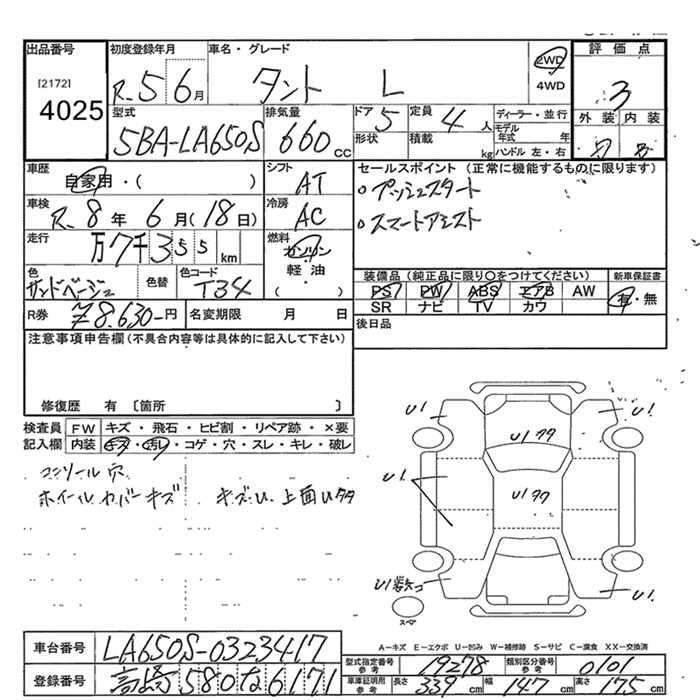 出品番号 初度登録年月 車名・グレード 評価点
[2172] 4025 R.5 6月 タント L 2WD 4WD 3
型式 排気量 ドア 定員 ディーラー・並行 外装 内装
5BA-LA650S 660cc 5 4人 モデル年式 年
形状 積載 kg ハンドル 左・右
車歴 自家用・( ) シフト AT
セールスポイント (正常に機能するものに限ります)
プッシュスタート
スマートアシスト
車検 R.8年6月(18日) 冷房 AC
走行 万7千355km 燃料 ガソリン・軽油 ( )
色 サンドベージュ 色替 色コード T34
装備品(純正品に限り○をつけてください) 新車保証書
PS PW ABS エアB AW 有・無
SR ナビ TV カワ
R券 ¥8.630-円 名変期限 月 日
後日品
注意事項申告欄(不具合内容等は具体的に記入して下さい)
修復歴 有〔箇所 〕
検査員記入欄 FW キズ・飛石・ヒビ割・リペア跡・×要
内装 キズ・汚れ・コゲ・穴・スレ・キレ・破レ
コンソール穴
ホイルカバーキズ キズU. 上面Uタタ
U1. U1.
U1タタ
U1.
U1タタ
U1.
スペア
A-キズ E-エクボ U-凹み W-補修跡 S-サビ C-腐食 XX-交換済
車台番号 LA650S-0323417
型式指定番号 参考 19278 類別区分番号 参考 0101
登録番号 高崎580な6171
車庫証明用 参考 長さ 339cm 幅 147cm 高さ 175cm